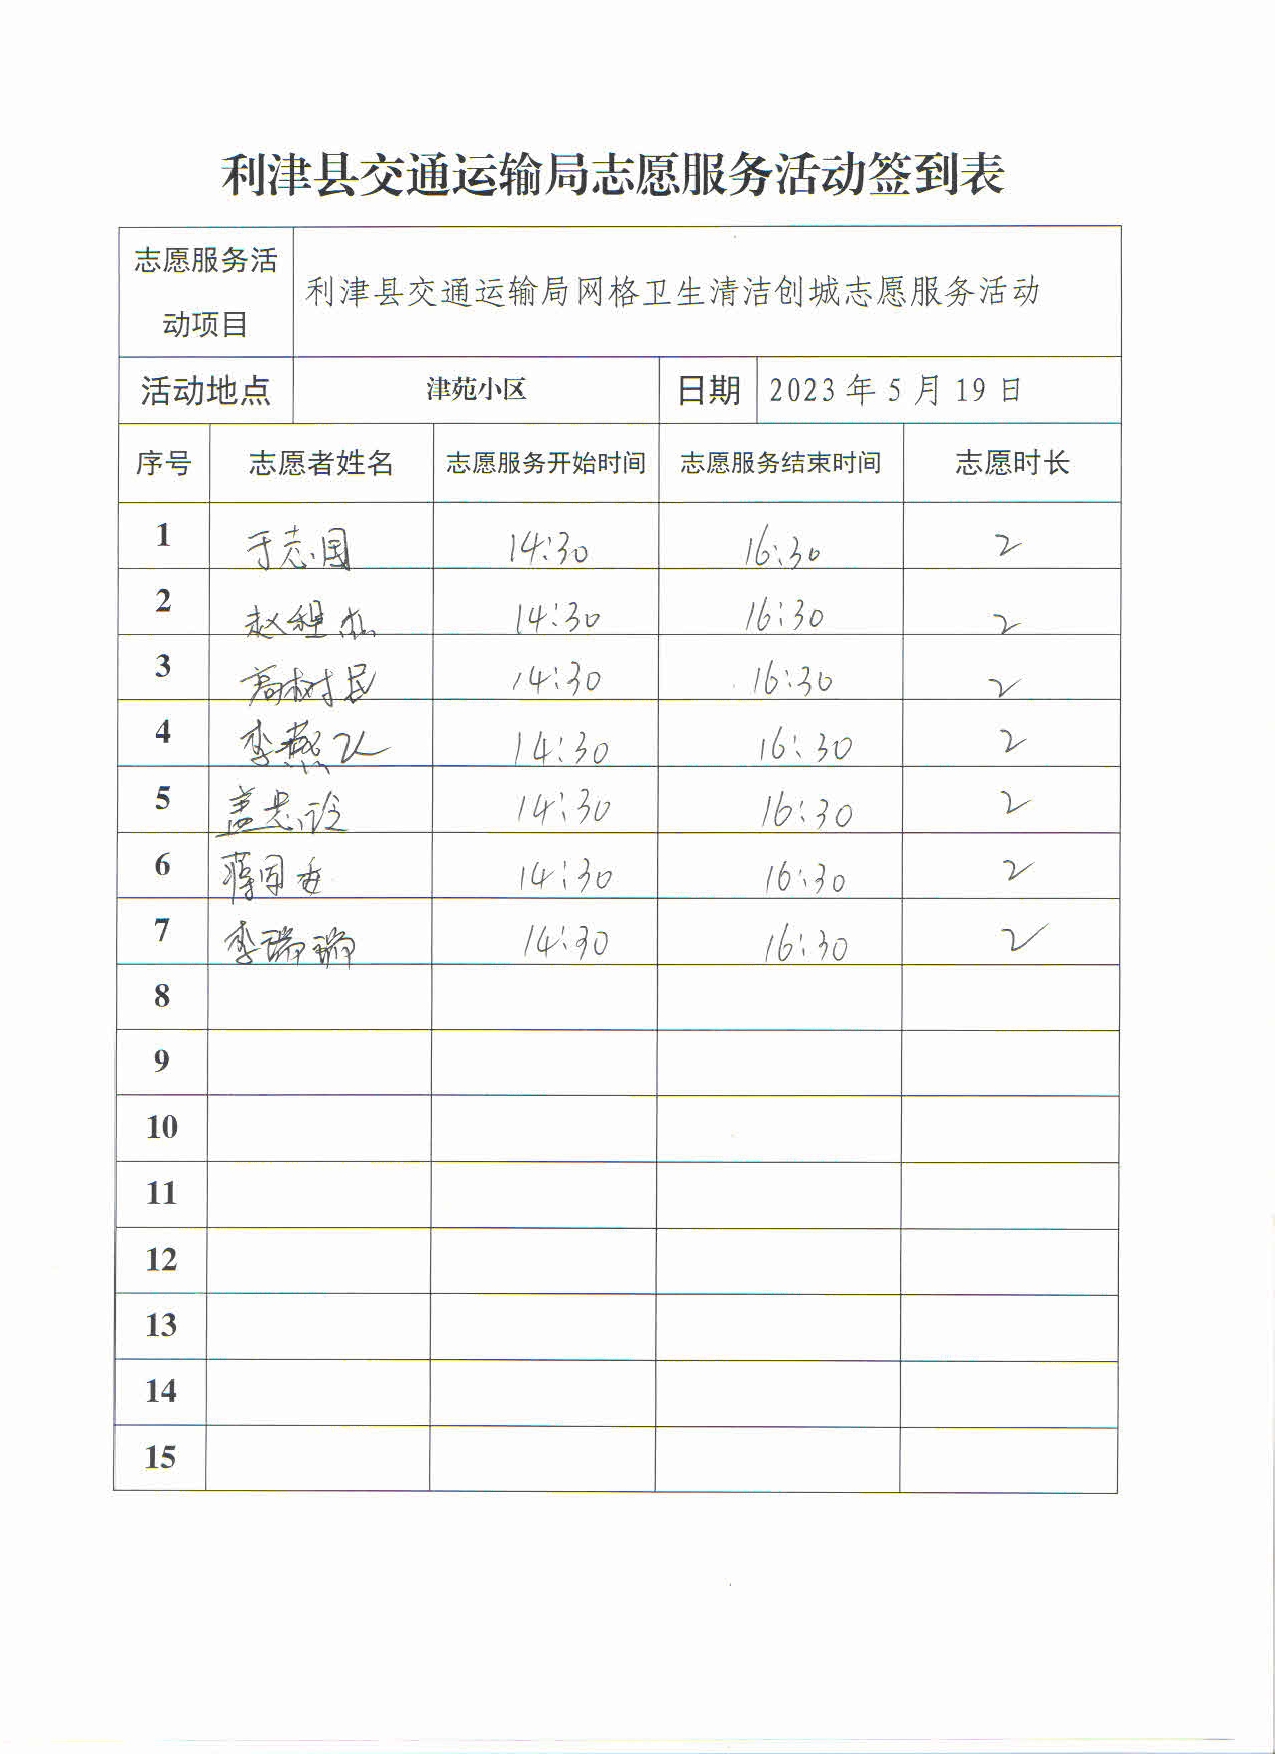 利津县交通运输局志愿服务活动签到表
志愿服务活动项目 利津县交通运输局网格卫生清洁创城志愿服务活动
活动地点 津苑小区 日期 2023 年 5 月 19 日
序号 志愿者姓名 志愿服务开始时间 志愿服务结束时间 志愿时长
1 于志国 14:30 16:30 2
2 赵 14:30 16:30 2
3 高树民 14:30 16:30 2
4 李燕 14:30 16:30 2
5 盖志 14:30 16:30 2
6 蒋国 14:30 16:30 2
7 李瑞瑞 14:30 16:30 2
8
9
10
11
12
13
14
15